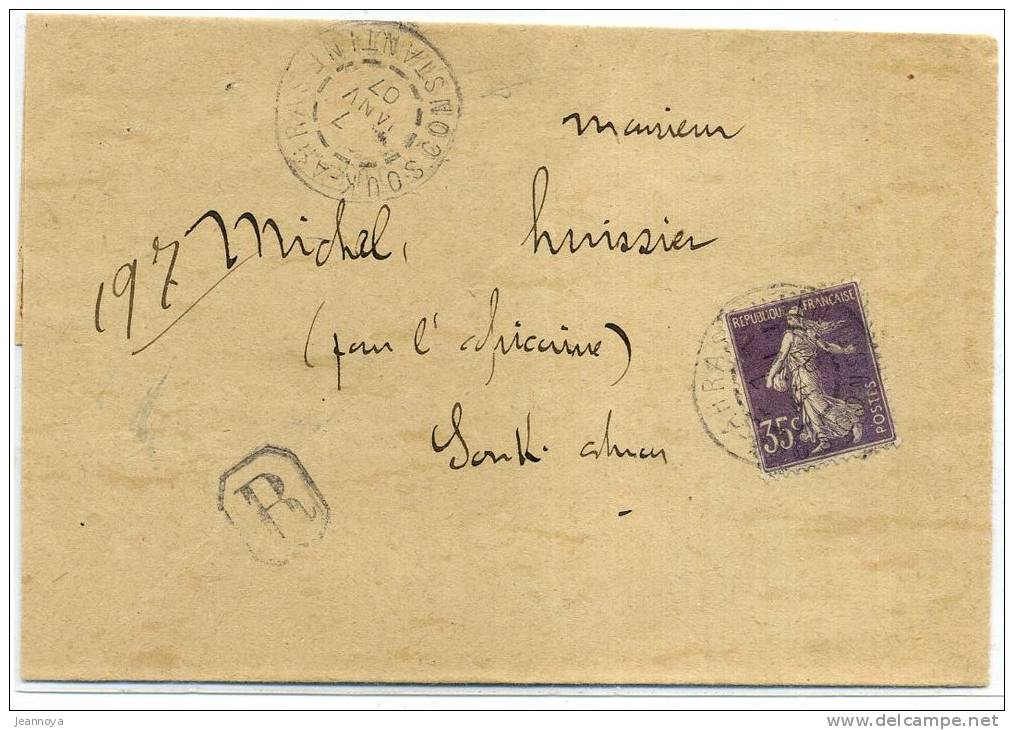 SOUK-AHRAS CONSTANTINE
7
JANV
07
monsieur
197 Michel, huissier
(pour l' africaine)
Souk. ahras
REPUBLIQUE FRANÇAISE
35c
POSTES
R
jeannoya
www.delcampe.net